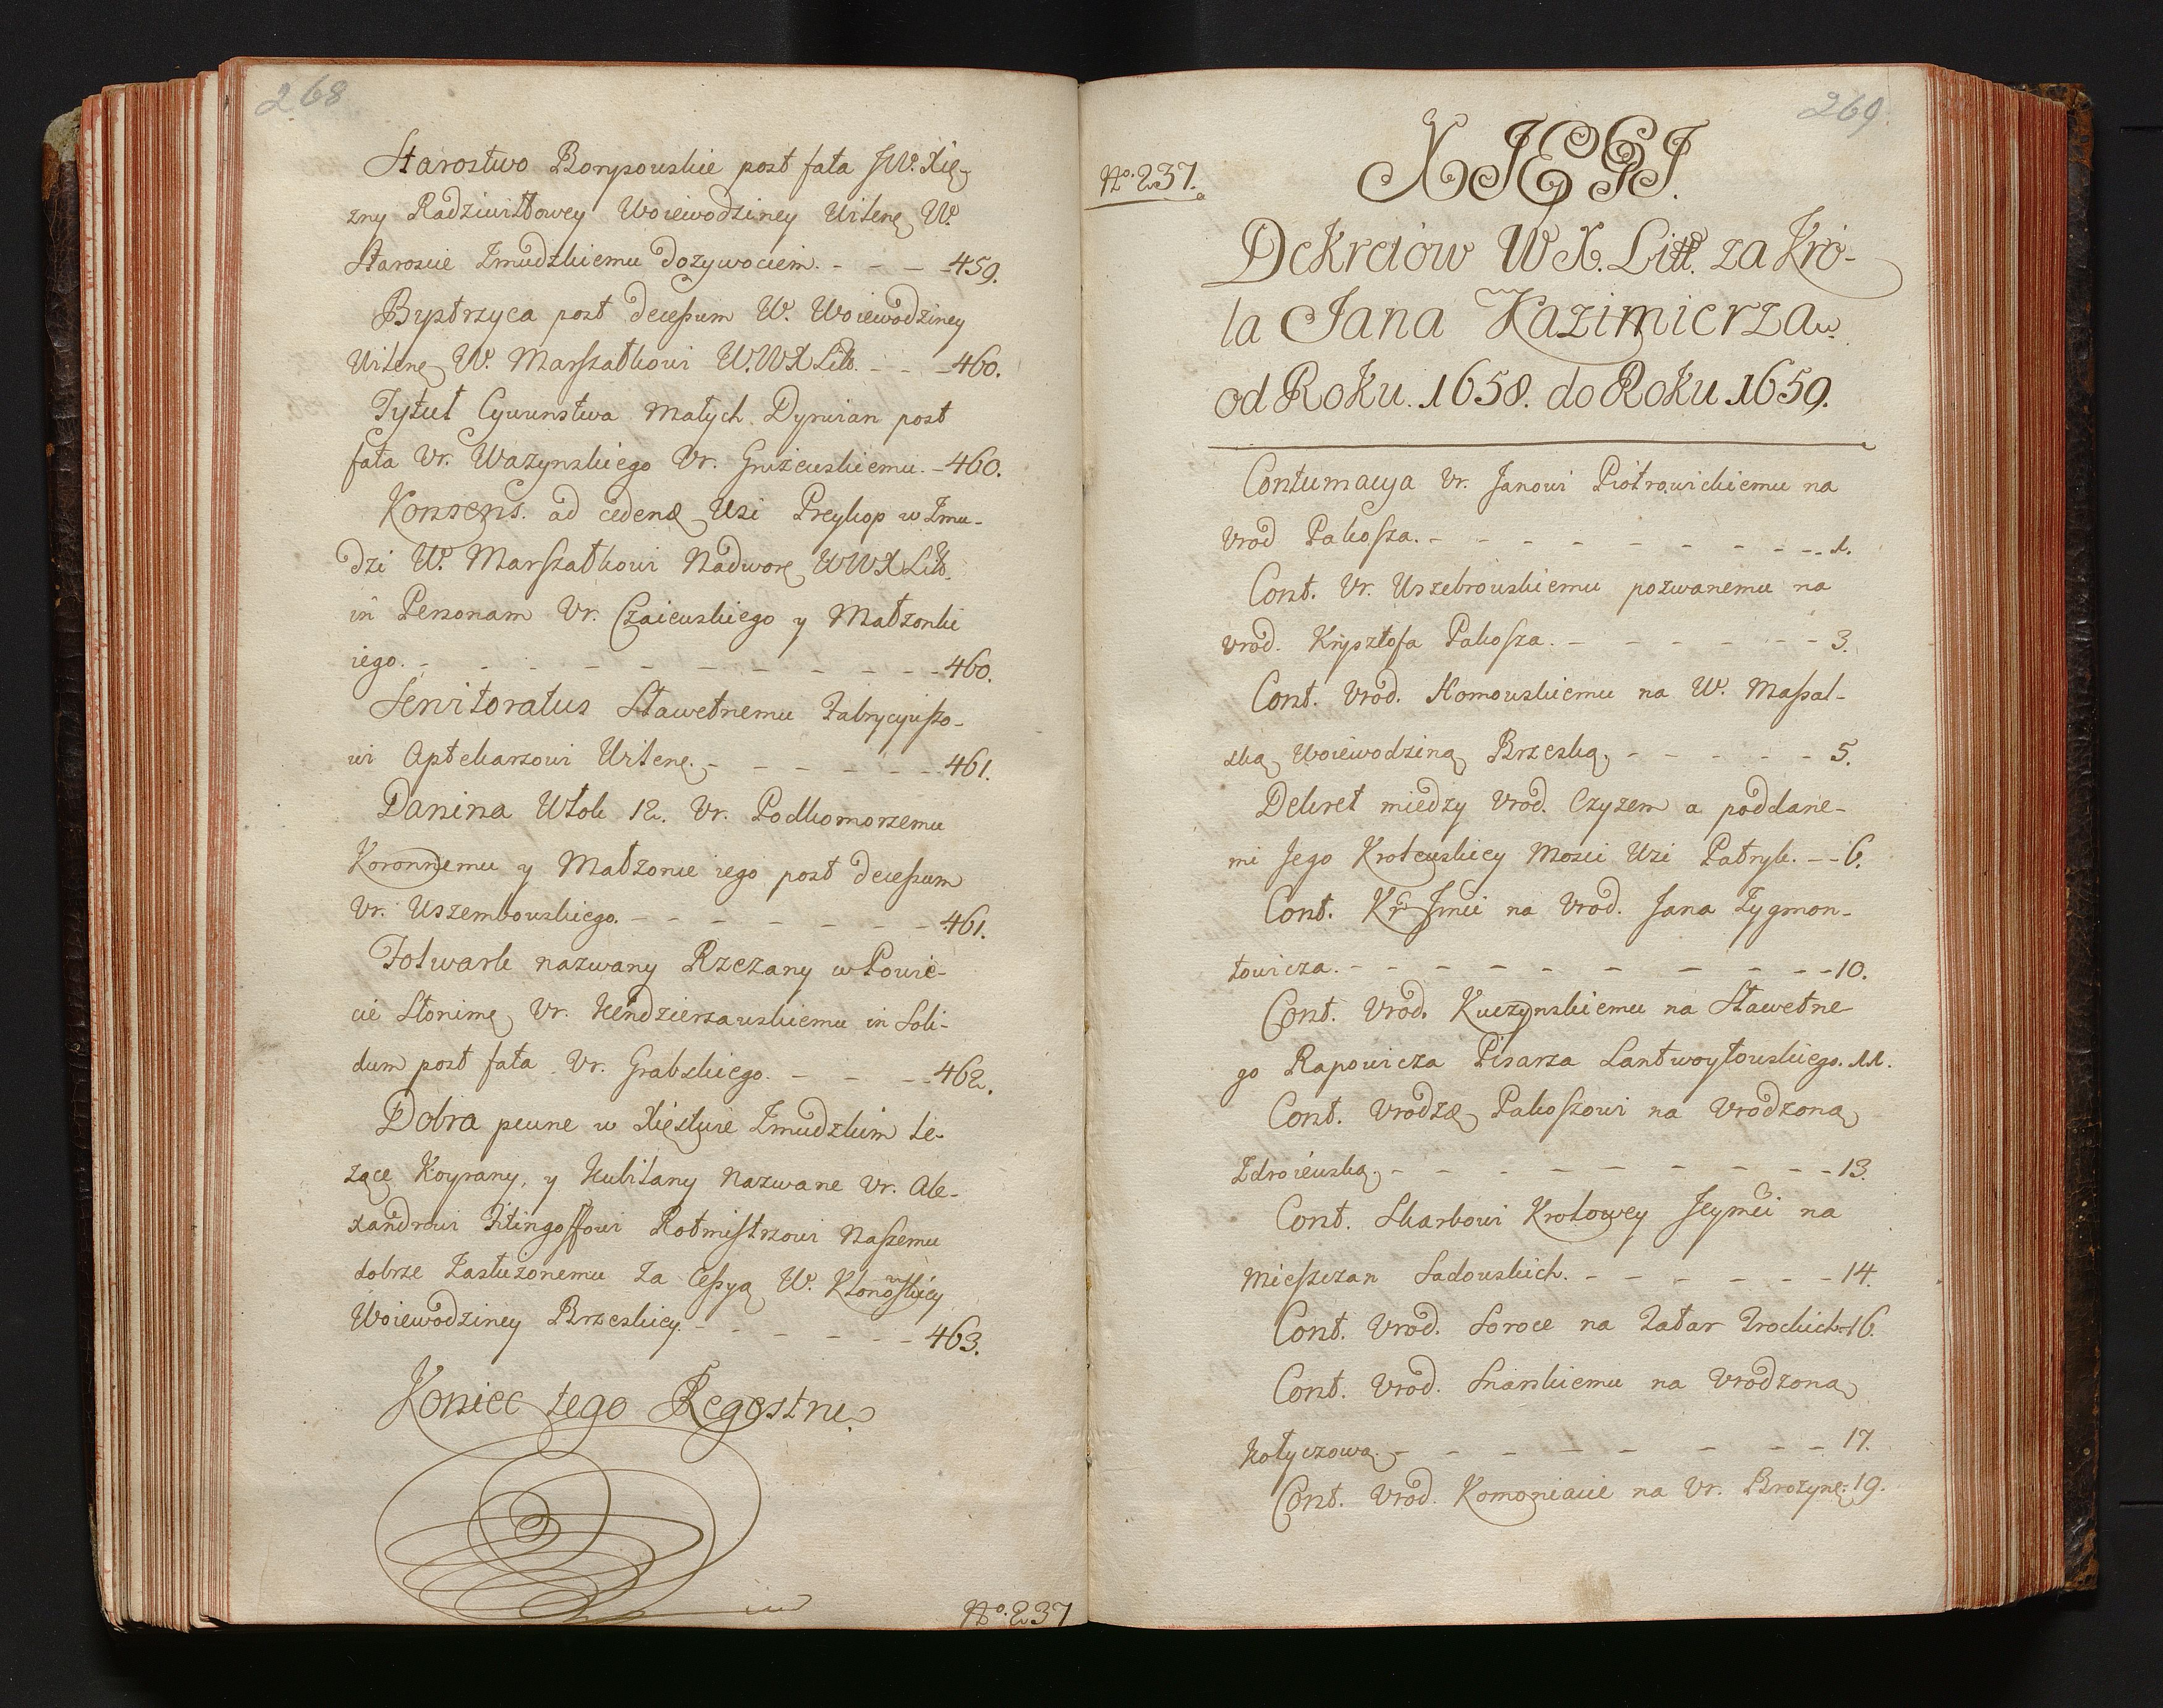 268
Starostwo Borysowskie post fata JW. Xię-
zny Radziwiłłowey Woiewodziney Wilenę W.
Staroscie Zmudzkiemu dozywociem. - - - 459.
Bystrzyca post decessum W. Woiewodziney
Wilenę W. Marszałkowi W.WXLitt. - - - 460.
Tytuł Cywunstwa Małych Dyrwian post
fata Vr. Wazynskiego Vr. Gruzewskiemu. - 460.
Konsens. ad cedenđ Wsi Preykop w Zmu-
dzi W. Marszałkowi Nadworę WWXLitt.
in Personam Vr. Czaiewskiego y Małzonki
iego. - - - - - - - - - - 460.
Servitoratus Sławetnemu Fabrycyusso-
wi Aptekarzowi Wilenę. - - - - - 461.
Danina Włok 12. Vr. Podkomorzemu
Koronnemu y Małzonce iego post decessum
Vr. Uszembowskiego. - - - - - - 461.
Folwark nazwany Rzezany w Powie-
cie Słonimę Vr. Kendzierzawskiemu in Soli-
dum post fata Vr. Grabskiego. - - - 462.
Dobra pewne w Xięstwie Zmudzkim le-
zące Koyrany, y Kubilany nazwane Vr. Ale-
xandrowi Fitingoffowi Rotmistrzowi Naszemu
dobrze Zasłuzonemu za Cessyą W. Kłonowskiey
Woiewodziney Brzeskiey. - - - - - 463.
Koniec tego Regestru.
No. 237
269.
No. 237.
XIĘGI.
Dekretow W X. Litt. za Kró-
la Jana Kazimierza
od Roku. 1658. do Roku 1659.
Contumacya Vr. Janowi Piotrowickiemu na
Vrod Pakosza. - - - - - - - - 1.
Cont. Vr. Uszebrowskiemu pozwanemu na
vrod. Krysztofa Pakosza. - - - - - 3.
Cont. Vrod. Homowskiemu na W. Massal-
ską Woiewodziną Brzeską, - - - - - 5.
Dekret miedzy Vrod. Czyzem a poddane-
mi Jego Krolewskiey Mosci Wsi Patryk. - - 6.
Cont. Kr Jmci na Vrod. Jana Zygmon-
towicza. - - - - - - - - - 10.
Cont. Vrod. Kuczynskiemu na Sławetne
go Rapowicza Pisarza Lantwoytowskiego. 11.
Cont. Vrodzę Pakoszowi na Vrodzoną
Zdroiewską. - - - - - - - - - 13.
Cont. Skarbowi Krolowey Jeymci na
Mieszczan Sadowskich. - - - - - - 14.
Cont. Vrod. Soroce na Tatar Trockich. 16.
Cont. Vrod. Snarskiemu na Vrodzoną
Kotyczową. - - - - - - - - 17.
Cont. Vrod. Komoniacie na Vr. Brozynę. 19.